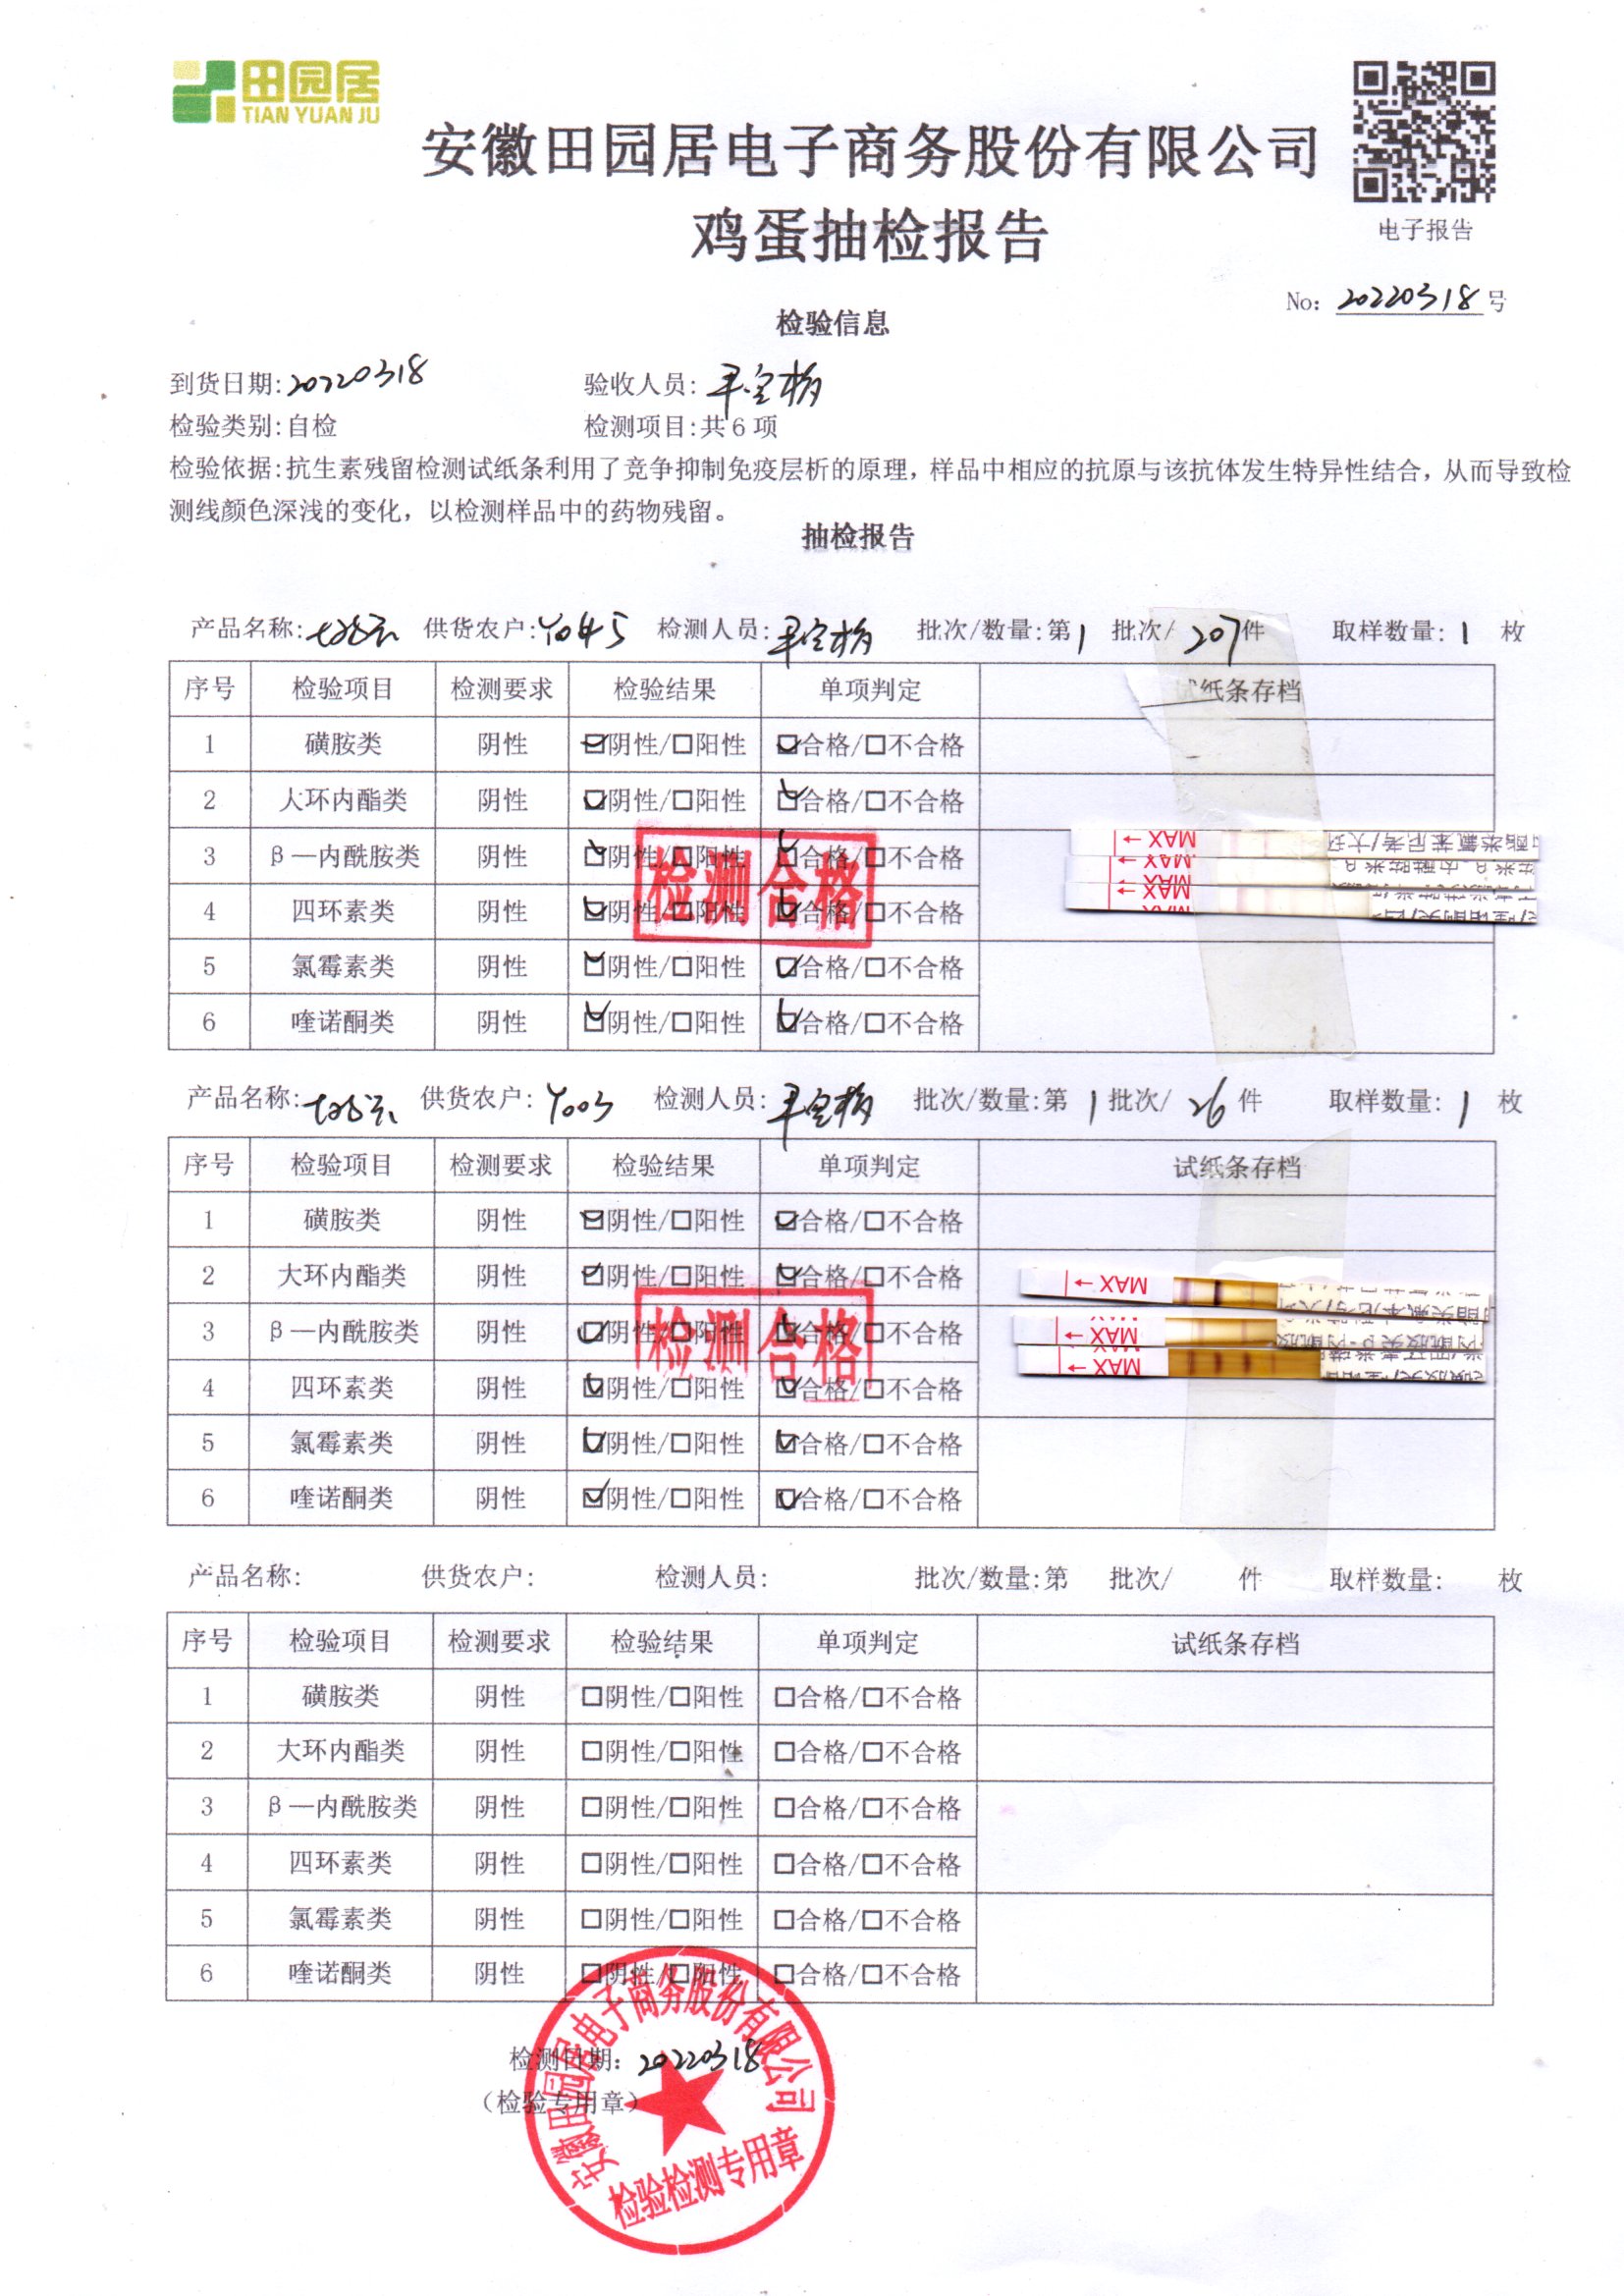 田园居
TIAN YUAN JU
安徽田园居电子商务股份有限公司
鸡蛋抽检报告
电子报告
No: 20220318 号
检验信息
到货日期:20220318 验收人员:
检验类别:自检 检测项目:共 6 项
检验依据:抗生素残留检测试纸条利用了竞争抑制免疫层析的原理，样品中相应的抗原与该抗体发生特异性结合，从而导致检
测线颜色深浅的变化，以检测样品中的药物残留。
抽检报告
产品名称: 供货农户:Y045 检测人员: 批次/数量:第1 批次/ 207件 取样数量: 1 枚
序号 检验项目 检测要求 检验结果 单项判定 试纸条存档
1 磺胺类 阴性 ☑阴性/□阳性 ☑合格/□不合格
2 大环内酯类 阴性 ☑阴性/□阳性 ☑合格/□不合格
3 β—内酰胺类 阴性 ☑阴性/□阳性 ☑合格/□不合格
4 四环素类 阴性 ☑阴性/□阳性 ☑合格/□不合格
5 氯霉素类 阴性 ☑阴性/□阳性 ☑合格/□不合格
6 喹诺酮类 阴性 ☑阴性/□阳性 ☑合格/□不合格
检测合格
MAX
MAX
MAX
产品名称: 供货农户: Y003 检测人员: 批次/数量:第 1 批次/ 26 件 取样数量: 1 枚
序号 检验项目 检测要求 检验结果 单项判定 试纸条存档
1 磺胺类 阴性 ☑阴性/□阳性 ☑合格/□不合格
2 大环内酯类 阴性 ☑阴性/□阳性 ☑合格/□不合格
3 β—内酰胺类 阴性 ☑阴性/□阳性 ☑合格/□不合格
4 四环素类 阴性 ☑阴性/□阳性 ☑合格/□不合格
5 氯霉素类 阴性 ☑阴性/□阳性 ☑合格/□不合格
6 喹诺酮类 阴性 ☑阴性/□阳性 ☑合格/□不合格
检测合格
MAX
MAX
MAX
产品名称: 供货农户: 检测人员: 批次/数量:第 批次/ 件 取样数量: 枚
序号 检验项目 检测要求 检验结果 单项判定 试纸条存档
1 磺胺类 阴性 □阴性/□阳性 □合格/□不合格
2 大环内酯类 阴性 □阴性/□阳性 □合格/□不合格
3 β—内酰胺类 阴性 □阴性/□阳性 □合格/□不合格
4 四环素类 阴性 □阴性/□阳性 □合格/□不合格
5 氯霉素类 阴性 □阴性/□阳性 □合格/□不合格
6 喹诺酮类 阴性 □阴性/□阳性 □合格/□不合格
检测日期: 20220318
（检验专用章）
安徽田园居电子商务股份有限公司
检验检测专用章